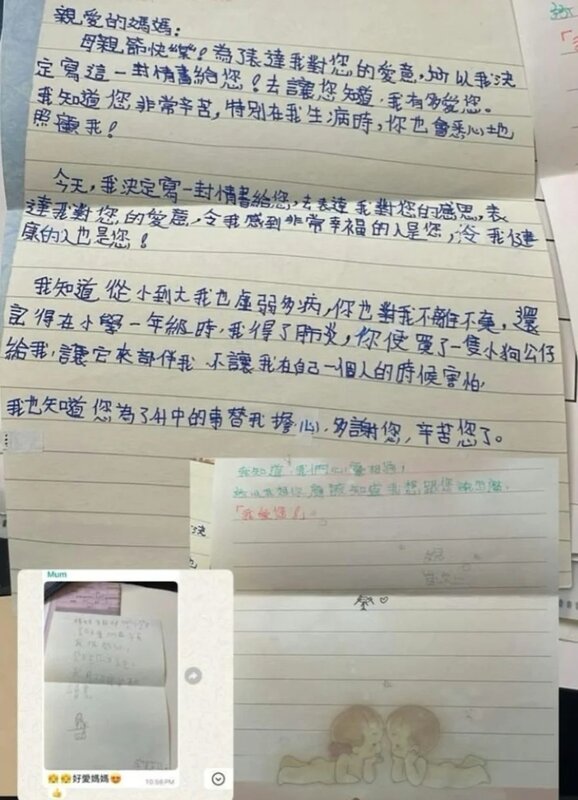 親愛的媽媽:
母親節快樂!為了表達我對您的愛意,所以我決
定寫這一封情書給您!去讓您知道,我有多愛您。
我知道您非常辛苦,特別在我生病時,你也會悉心地
照顧我!
今天,我決定寫一封情書給您,去表達我對您的感恩,表
達我對您的愛意,令我感到非常幸福的人是您,令我健
康的人也是您!
我知道從小到大我也虛弱多病,你也對我不離不棄,還
記得在小學一年級時,我得了肺炎,你便買了一隻小狗公仔
給我,讓它來部伴我,不讓我在自己一個人的時候害怕,
我也知道您為了升中的事替我擔心,多謝您,辛苦您了。
我知道,我們心靈相通,
所以我想你應該知道我想跟您說
「我愛您!」。
Mum
好愛媽媽
10:56PM